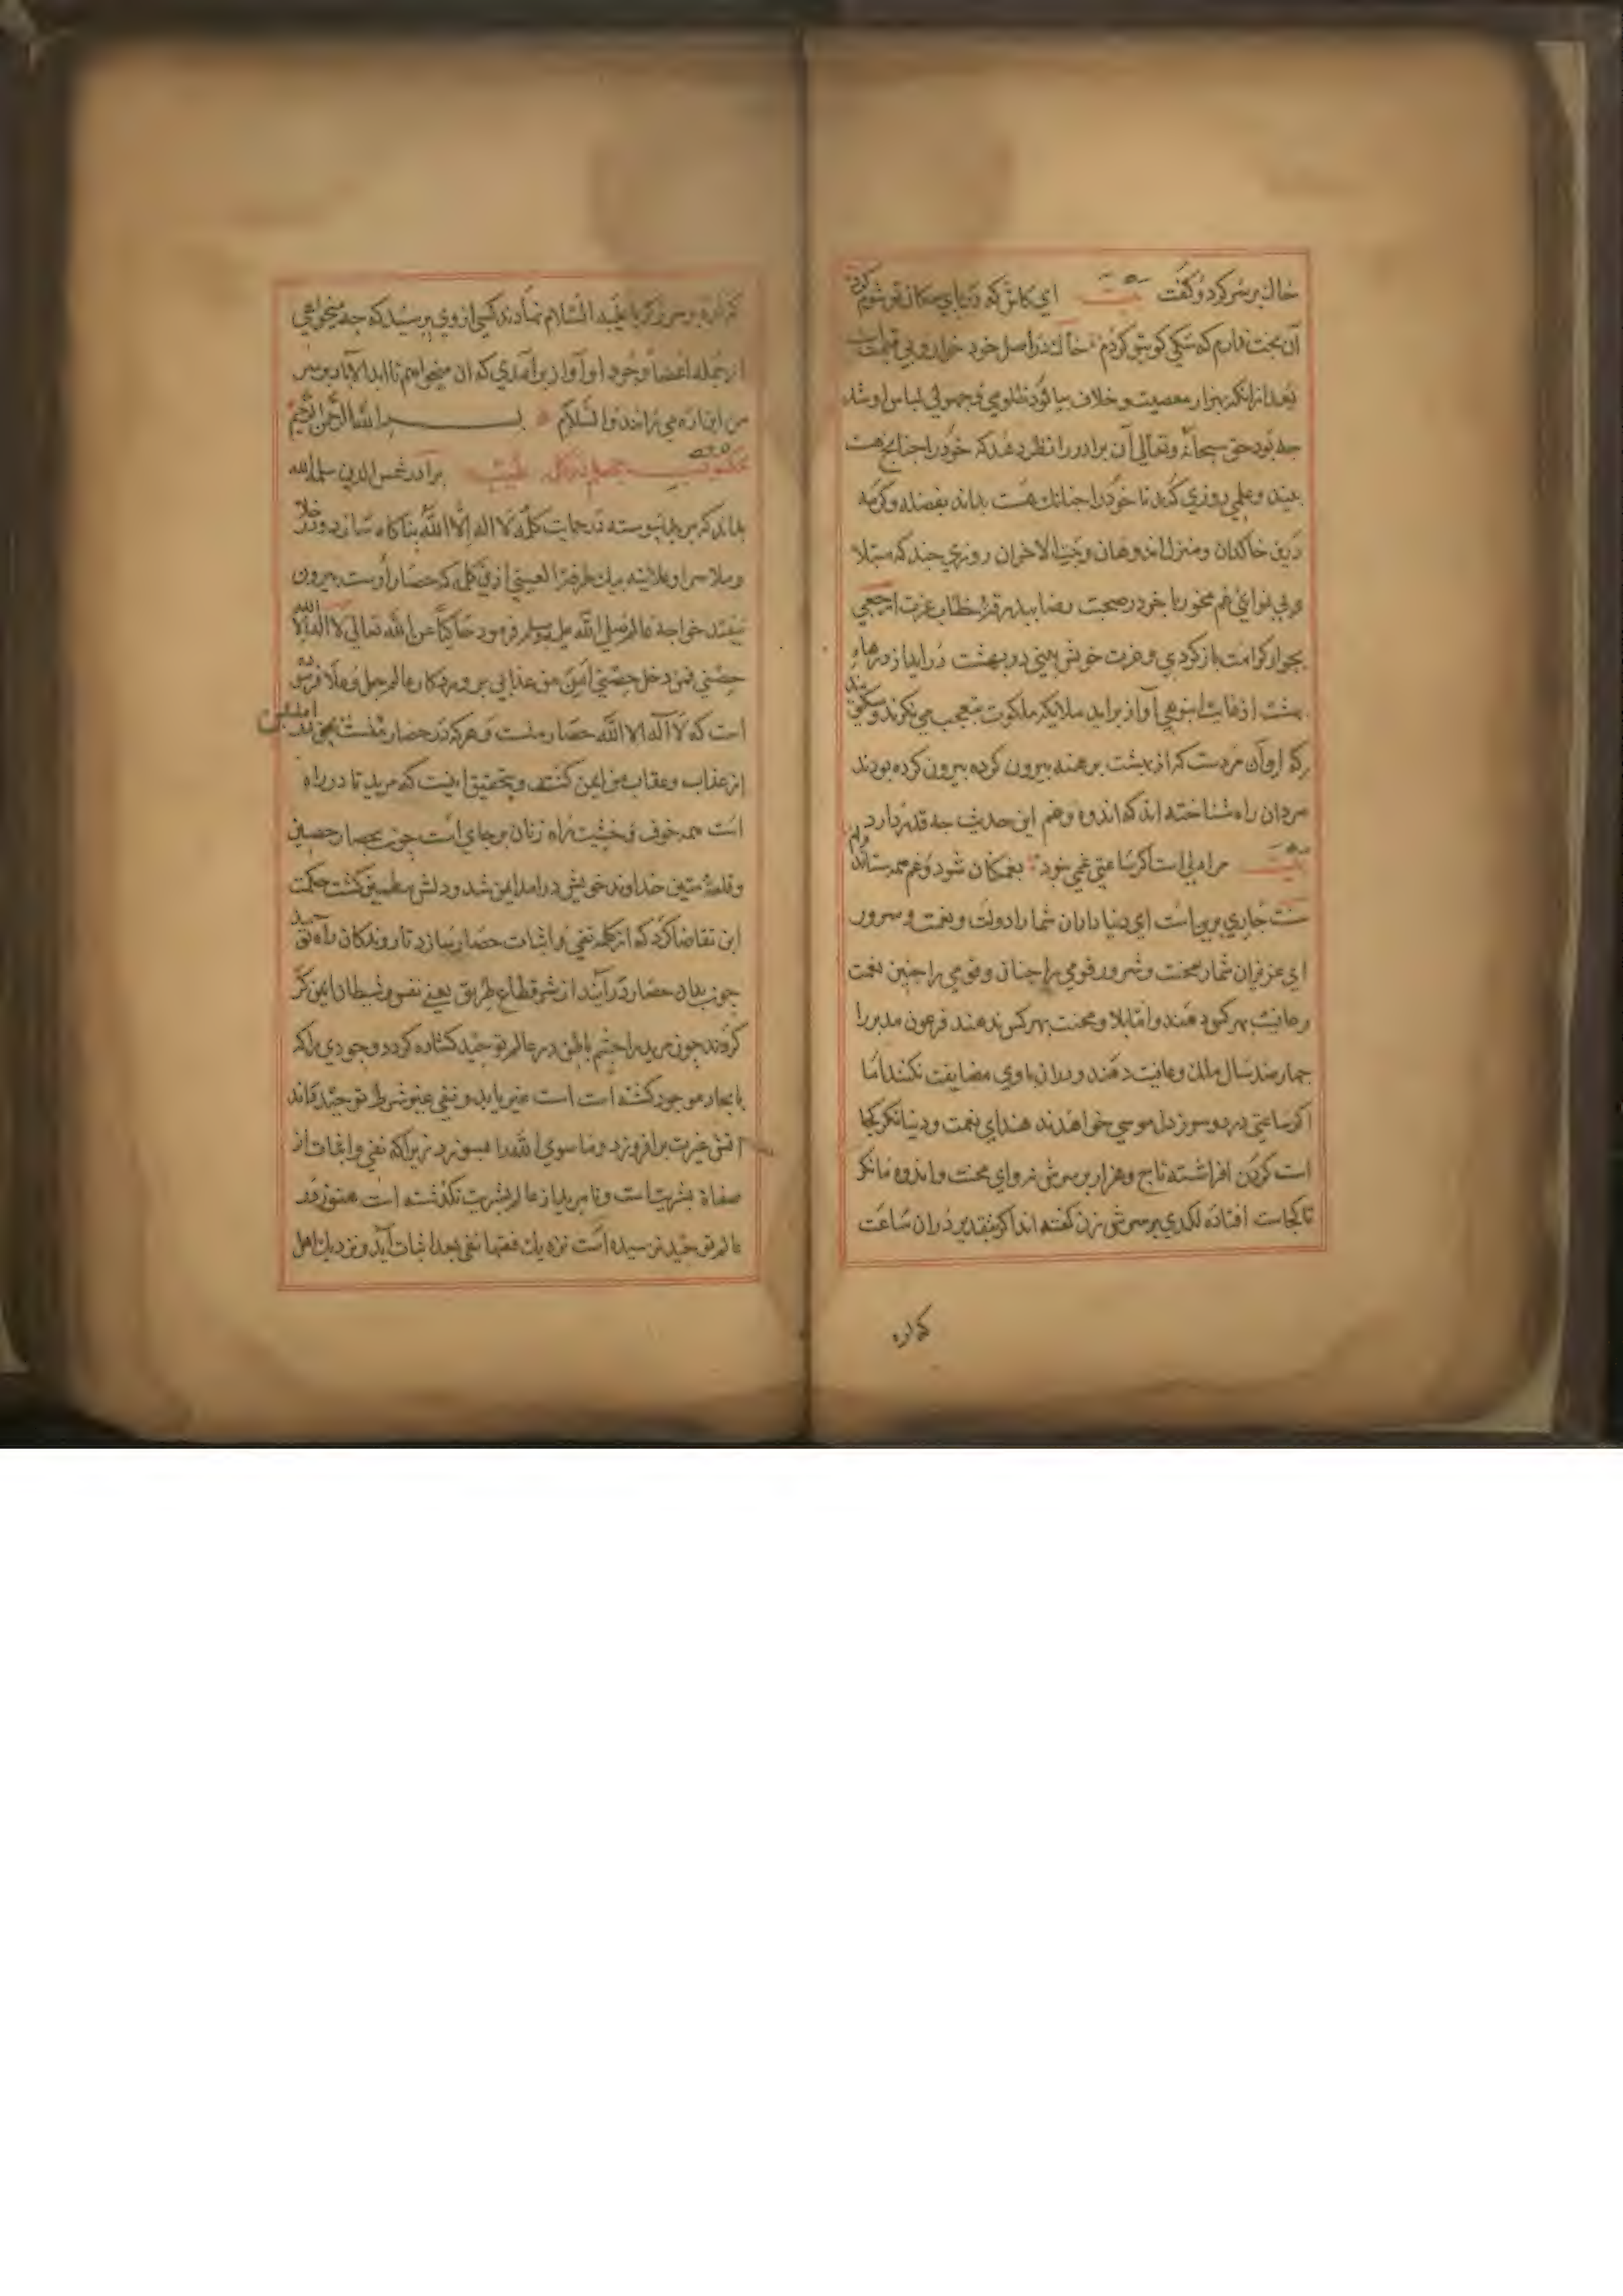 خاك بر سر كرد و گفت بيت اي كاش كه در پاي سكان تو شوم گرد
آن بخت ندارم كه سك كوي تو گردم خاك در اصل خود خوار و بي قيمت است
بعد از انكه بهزار معصيت و خلاف بيالود ظلومي و جهولي لباس او شد
چه بود حق سبحانه و تعالي آن برادر را نظر دهد كه خود را چنانچه هست
بيند و علمي روزي كند تا خود را چنانك هست بداند بفضله و كرمه
درين خاكدان و منزل اندوهان و بيت الاحزان روزي چند كه مبتلا
و بي نوايي غم مخور تا خود در صحبت رضا بيدرقه خطاب عزت ارجعي
بجوار كرامت باز گردي و عزت خويش بيني در بهشت درايد از درهاء
بهشت از غايت انبوهي آواز برايد ملايكه ملكوت متعجب مي نگرند و مي گويند
كه او آن مردست كه از بهشت برهنه بيرون كرده بيرون كرده بودند
مردان راه شناخته اند كه اندوه و غم اين حديث چه قدر دارد
بيت مرا دلي است اگر ساعتي غمي نبود بغمكان شود و غم همه ستاند وام
سنت جاري برين است اي دنيا داران شما را دولت و نعمت و سرور
اي عزيزان شما را محنت و شرور قومي را چنان و قومي را چنين نعمت
و عافيت بهر كس دهند و اما بلا و محنت بهر كس ندهند فرعون مدبر را
چهار صد سال ملك و عافيت دهند و دران با وي مضايقت نكنند اما
اگر ساعتي درد و سوز دل موسي خواهد ندهند اي نعمت و دنيا نگر كجا
است گردن افراشته تاج و هزار بر سرش نه و اي محنت و اندوه نگر
تا كجاست افتاده لكدي بر سرش زن گفته اند اكر بتقدير دران ساعت
كه اره
كه اره بر سر زكريا عليه السلام نهادند كسي از وي پرسيد كه چه ميخواهي
از جمله اعضا و وجود او آواز برآمدي كه ان ميخواهم تا ابد الاباد بر سر
من اين اره مي رانند و السلام بسم الله الرحمن الرحيم
مكتوب برادر شمس الدين سلمه الله
بداند كه پيوسته در حمايت كلمه لا اله الا الله پناگاه سازد و در خلا
و ملا سرا و علانيه بيك طرفة العيني ازين كلمه كه حصار اوست بيرون
نيفتد خواجه عالم صلي الله عليه وسلم فرمود حاكيا عن الله تعالي لا اله الا الله
حصني فمن دخل حصني امن من عذابي پروردكار عالم جل و علا فرموده
است كه لا اله الا الله حصار منست و هركه در حصار منست
از عذاب و عقاب من ايمن كشت و تحقيق اينست كه مريد تا در راه
است همه خوف و خشيت راه زنان بر جاي است چون بحصار حصين
و قلعه متين خداوند خويش درامد ايمن شد و دلش مطمين گشت حكمت
اين تقاضا كرد كه از كلمه نفي و اثبات حصار سازد تا روندكان راه توحيد
چون بدان حصار درآيند از شر قطاع طريق يعني نفس و شيطان ايمن
گردند چون مريد را چشم باطن در عالم توحيد كشاده گردد وجودي را كه
بايجاد موجود گشته است غير يابد و نفي غير شرط توحيد داند
آتش غيرت برافروزد و ما سوي الله را بسوزد زيرا كه نفي و اثبات از
صفاة بشريت است و تا مريد از عالم بشريت نگذشته است هنوز در
عالم توحيد نرسيده است نزديك فقها نفي بعد اثبات آيد و نزديك اهل